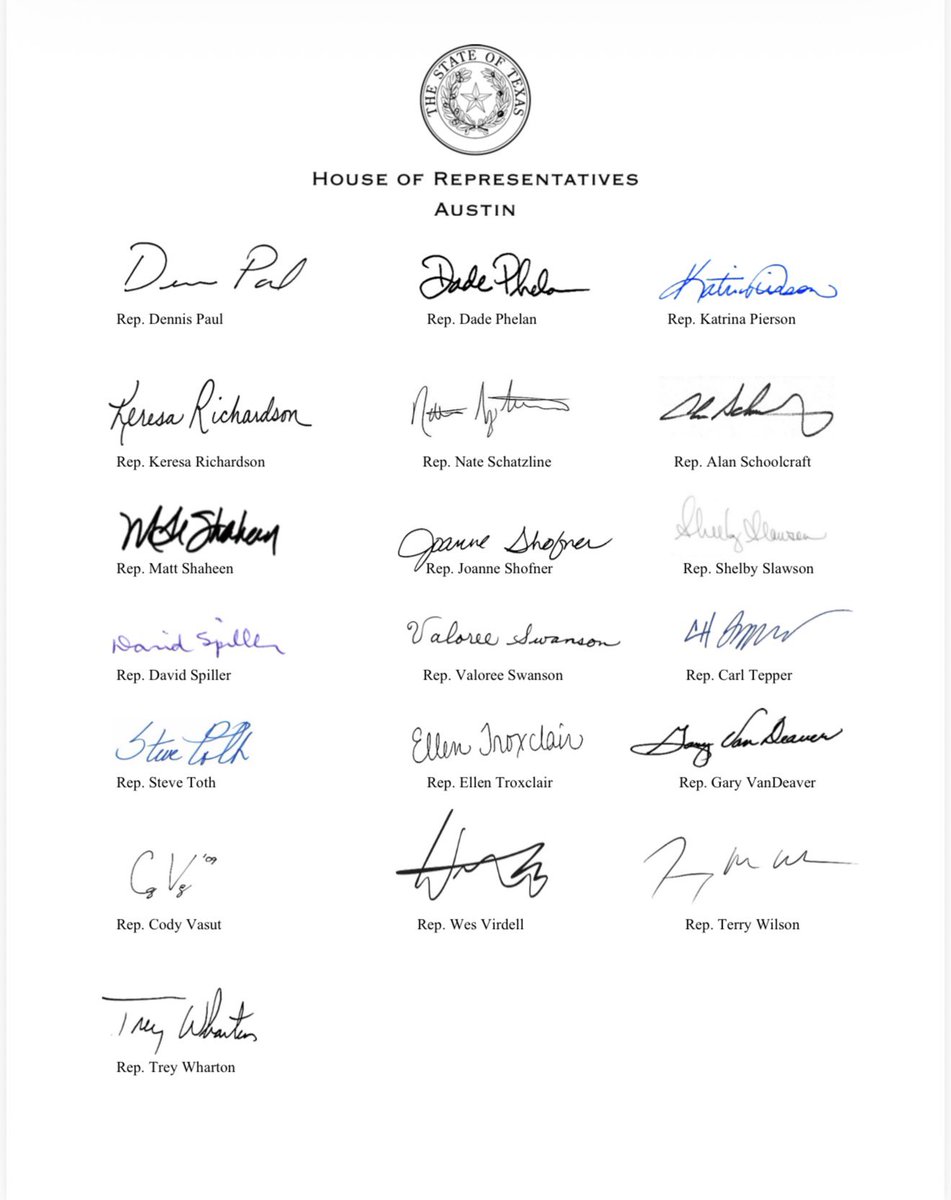 THE STATE OF TEXAS
HOUSE OF REPRESENTATIVES
AUSTIN
Dade Phelan
Rep. Dennis Paul Rep. Dade Phelan Rep. Katrina Pierson
Keresa Richardson
Rep. Keresa Richardson Rep. Nate Schatzline Rep. Alan Schoolcraft
Matt Shaheen Joanne Shofner Shelby Slawson
Rep. Matt Shaheen Rep. Joanne Shofner Rep. Shelby Slawson
David Spiller Valoree Swanson
Rep. David Spiller Rep. Valoree Swanson Rep. Carl Tepper
Steve Toth Ellen Troxclair Gary VanDeaver
Rep. Steve Toth Rep. Ellen Troxclair Rep. Gary VanDeaver
'09
Rep. Cody Vasut Rep. Wes Virdell Rep. Terry Wilson
Trey Wharton
Rep. Trey Wharton